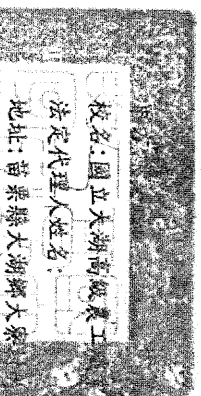 校名:國立大湖高級農工
法定代理人姓名:
地址:苗栗縣大湖鄉大寮